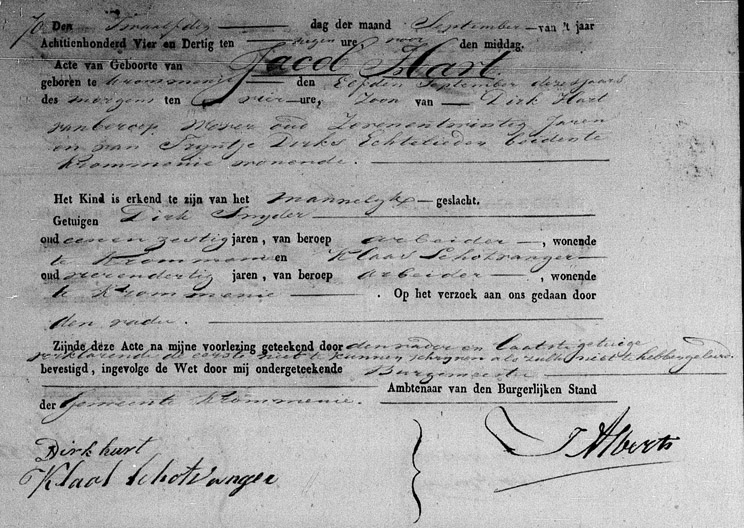 70. Den Twaalfden dag der maand September van 't jaar
Achttienhonderd Vier en Dertig ten negen ure voor den middag.
Acte van Geboorte van Jacob Hart.
geboren te Krommenie den Elfden September dezes jaars
des morgens ten vier ure, Zoon van Dirk Hart
van beroep Wever oud Zevenentwintig Jaren
en van Tryntje Dirks Echtelieden beide te
Krommenie wonende.
Het Kind is erkend te zijn van het Mannelyke geslacht.
Getuigen Dirk Snyder
oud eenen zestig jaren, van beroep arbeider, wonende
te Krommenie en Klaas Schotvanger
oud vierendertig jaren, van beroep arbeider, wonende
te Krommenie. Op het verzoek aan ons gedaan door
den vader.
Zijnde deze Acte na mijne voorlezing geteekend door den vader en laatste getuige
verklarende de eerste niet te kunnen schryven als zulks niet te hebben geleerd.
bevestigd, ingevolge de Wet door mij ondergeteekende Burgemeester
Ambtenaar van den Burgerlijken Stand
der Gemeente Krommenie.
Dirk hart
Klaas Schotvanger
J Alberts